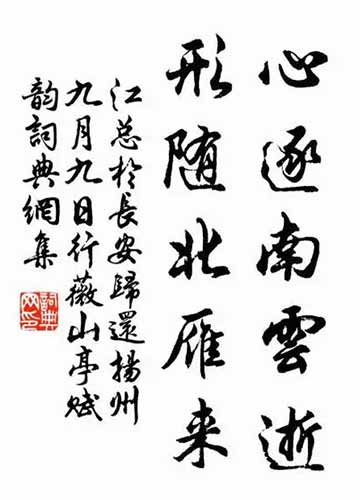 心逐南雲逝
形随北雁来
江总於長安歸還揚州
九月九日行薇山亭赋
韵詞典網集
詞典网印